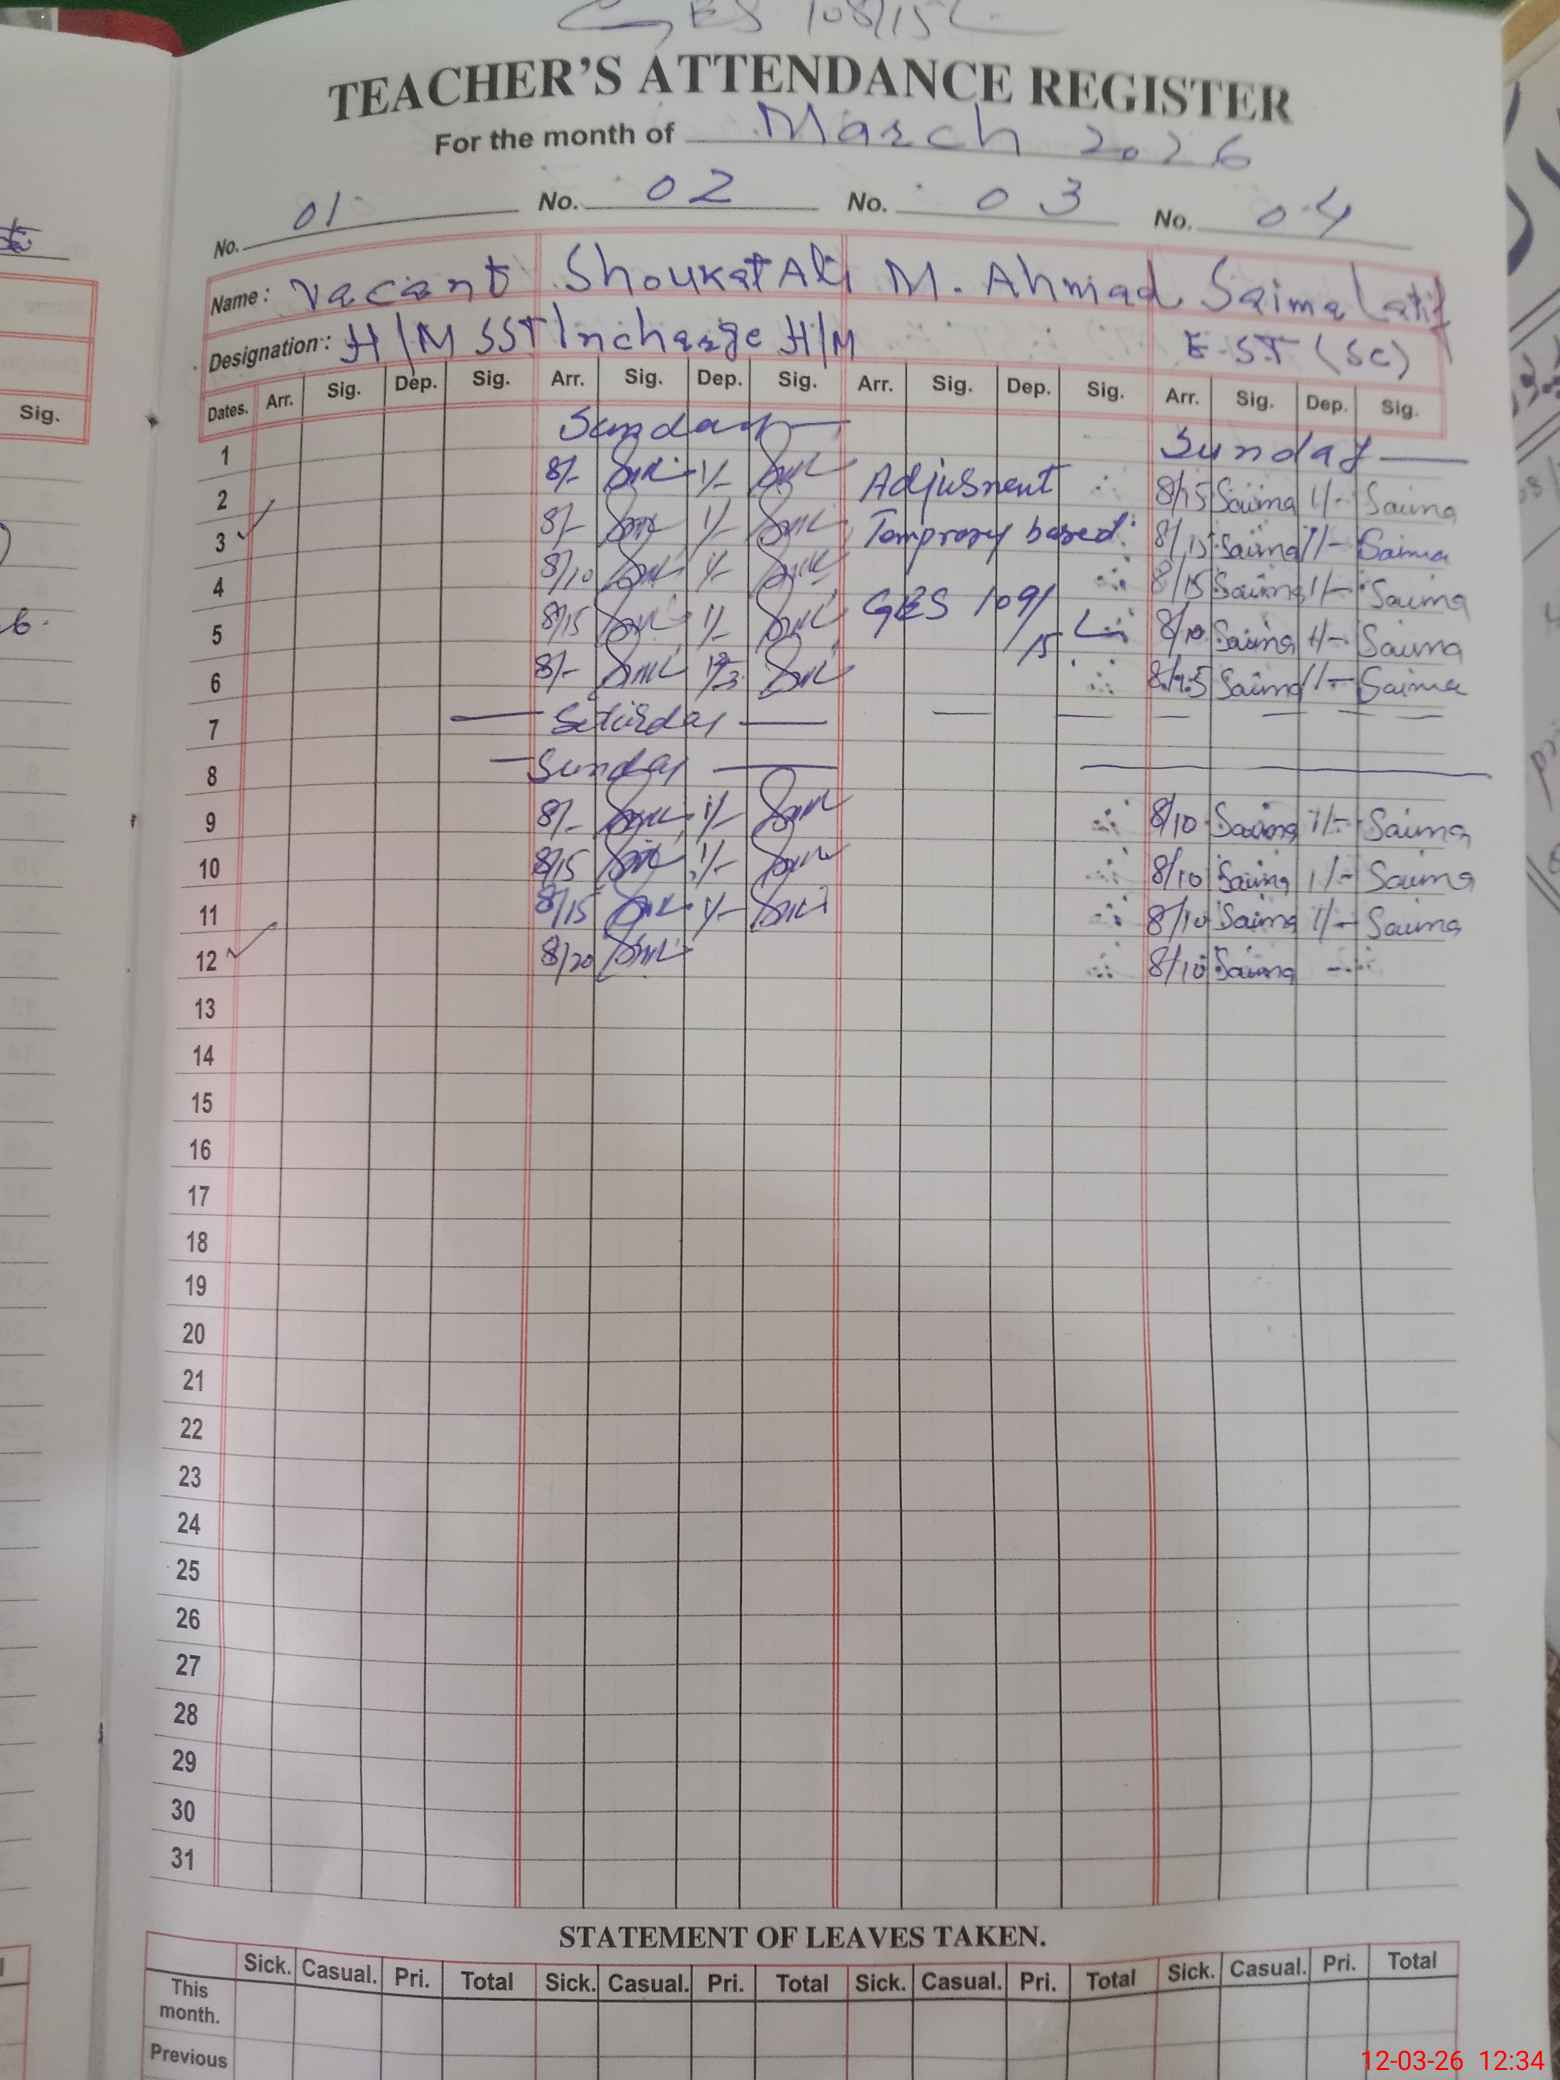 GES 108/15L
TEACHER'S ATTENDANCE REGISTER
For the month of March 2026
No. 01 No. 02 No. 03 No. 04
Name: Vacant Shoukat Ali M. Ahmad Saima Latif
Designation: H/M SST/Incharge H/M E.S.T (SC)
Dates. Arr. Sig. Dep. Sig. Arr. Sig. Dep. Sig. Arr. Sig. Dep. Sig. Arr. Sig. Dep. Sig.
Sig.
1 Sunday Sunday
2 8/- 1/- Adjusment 8/15 Saima 1/- Saima
3 8/- 1/- Temprory based 8/15 Saima 1/- Saima
4 8/10 1/- 8/15 Saima 1/- Saima
5 8/15 1/- GES 109/15 L 8/10 Saima 1/- Saima
6 8/- 8/15 Saima 1/- Saima
7 Seturday
8 Sunday
9 8/- 1/- 8/10 Saima 1/- Saima
10 8/15 1/- 8/10 Saima 1/- Saima
11 8/15 1/- 8/10 Saima 1/- Saima
12 8/20 8/10 Saima
13
14
15
16
17
18
19
20
21
22
23
24
25
26
27
28
29
30
31
STATEMENT OF LEAVES TAKEN.
Sick. Casual. Pri. Total Sick. Casual. Pri. Total Sick. Casual. Pri. Total Sick. Casual. Pri. Total
This month.
Previous
12-03-26 12:34